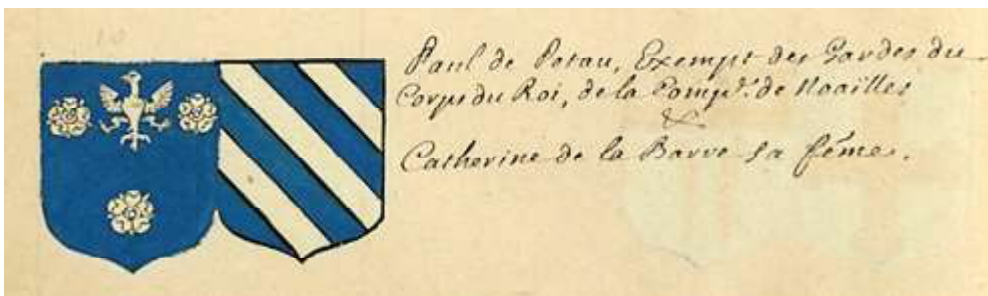 Paul de Potau, Exempt des Gardes du
Corps du Roi, de la Compe. de Noailles
&
Catherine de la Barre sa féme.